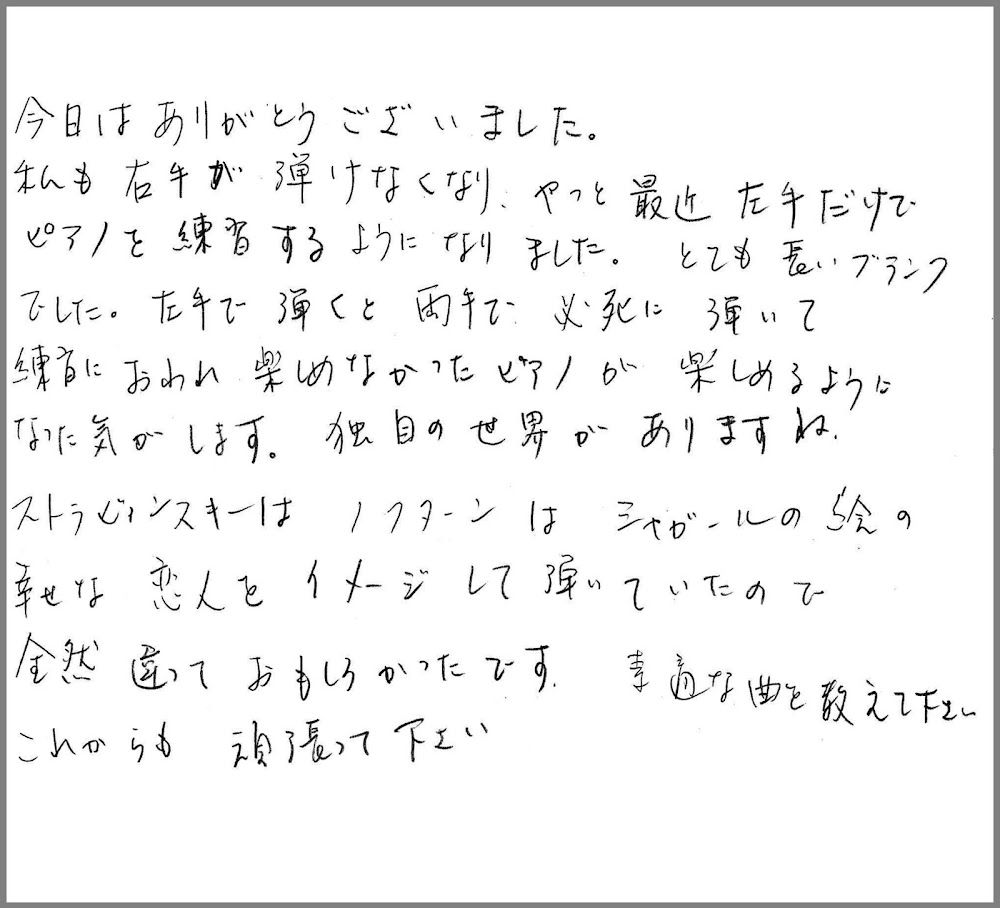 今日はありがとうございました。
私も右手が弾けなくなり、やっと最近左手だけで
ピアノを練習するようになりました。とても長いブランク
でした。左手で弾くと両手で必死に弾いて
練習におわれ楽しめなかったピアノが楽しめるように
なった気がします。独自の世界がありますね.
ストラビィンスキーは ノクターンは シャガールの絵の
幸せな恋人をイメージして弾いていたので
全然違っておもしろかったです. 素適な曲を教えて下さい
これからも頑張って下さい